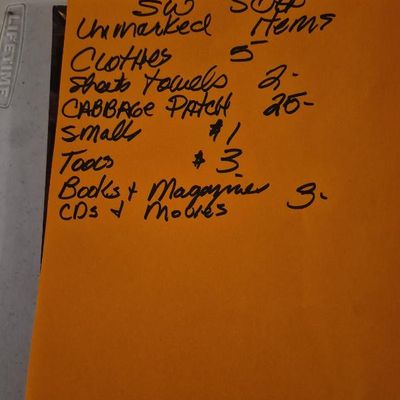 LIFETIME
Unmarked Items
Clothes 5-
Sheets towels 2-
CABBAGE PATCH 25-
Smalls $1
Tools $3
Books + Magazines
CDs & Movies 3-